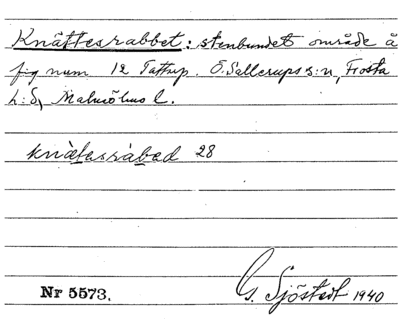 Knättesrabbet: stenbundet område å
fig num 12 Tattrup. Ö. Sallerups s:n, Frosta
h:d, Malmöhus l.
knätasrabad 28
Nr 5573.
G. Sjöstedt 1940